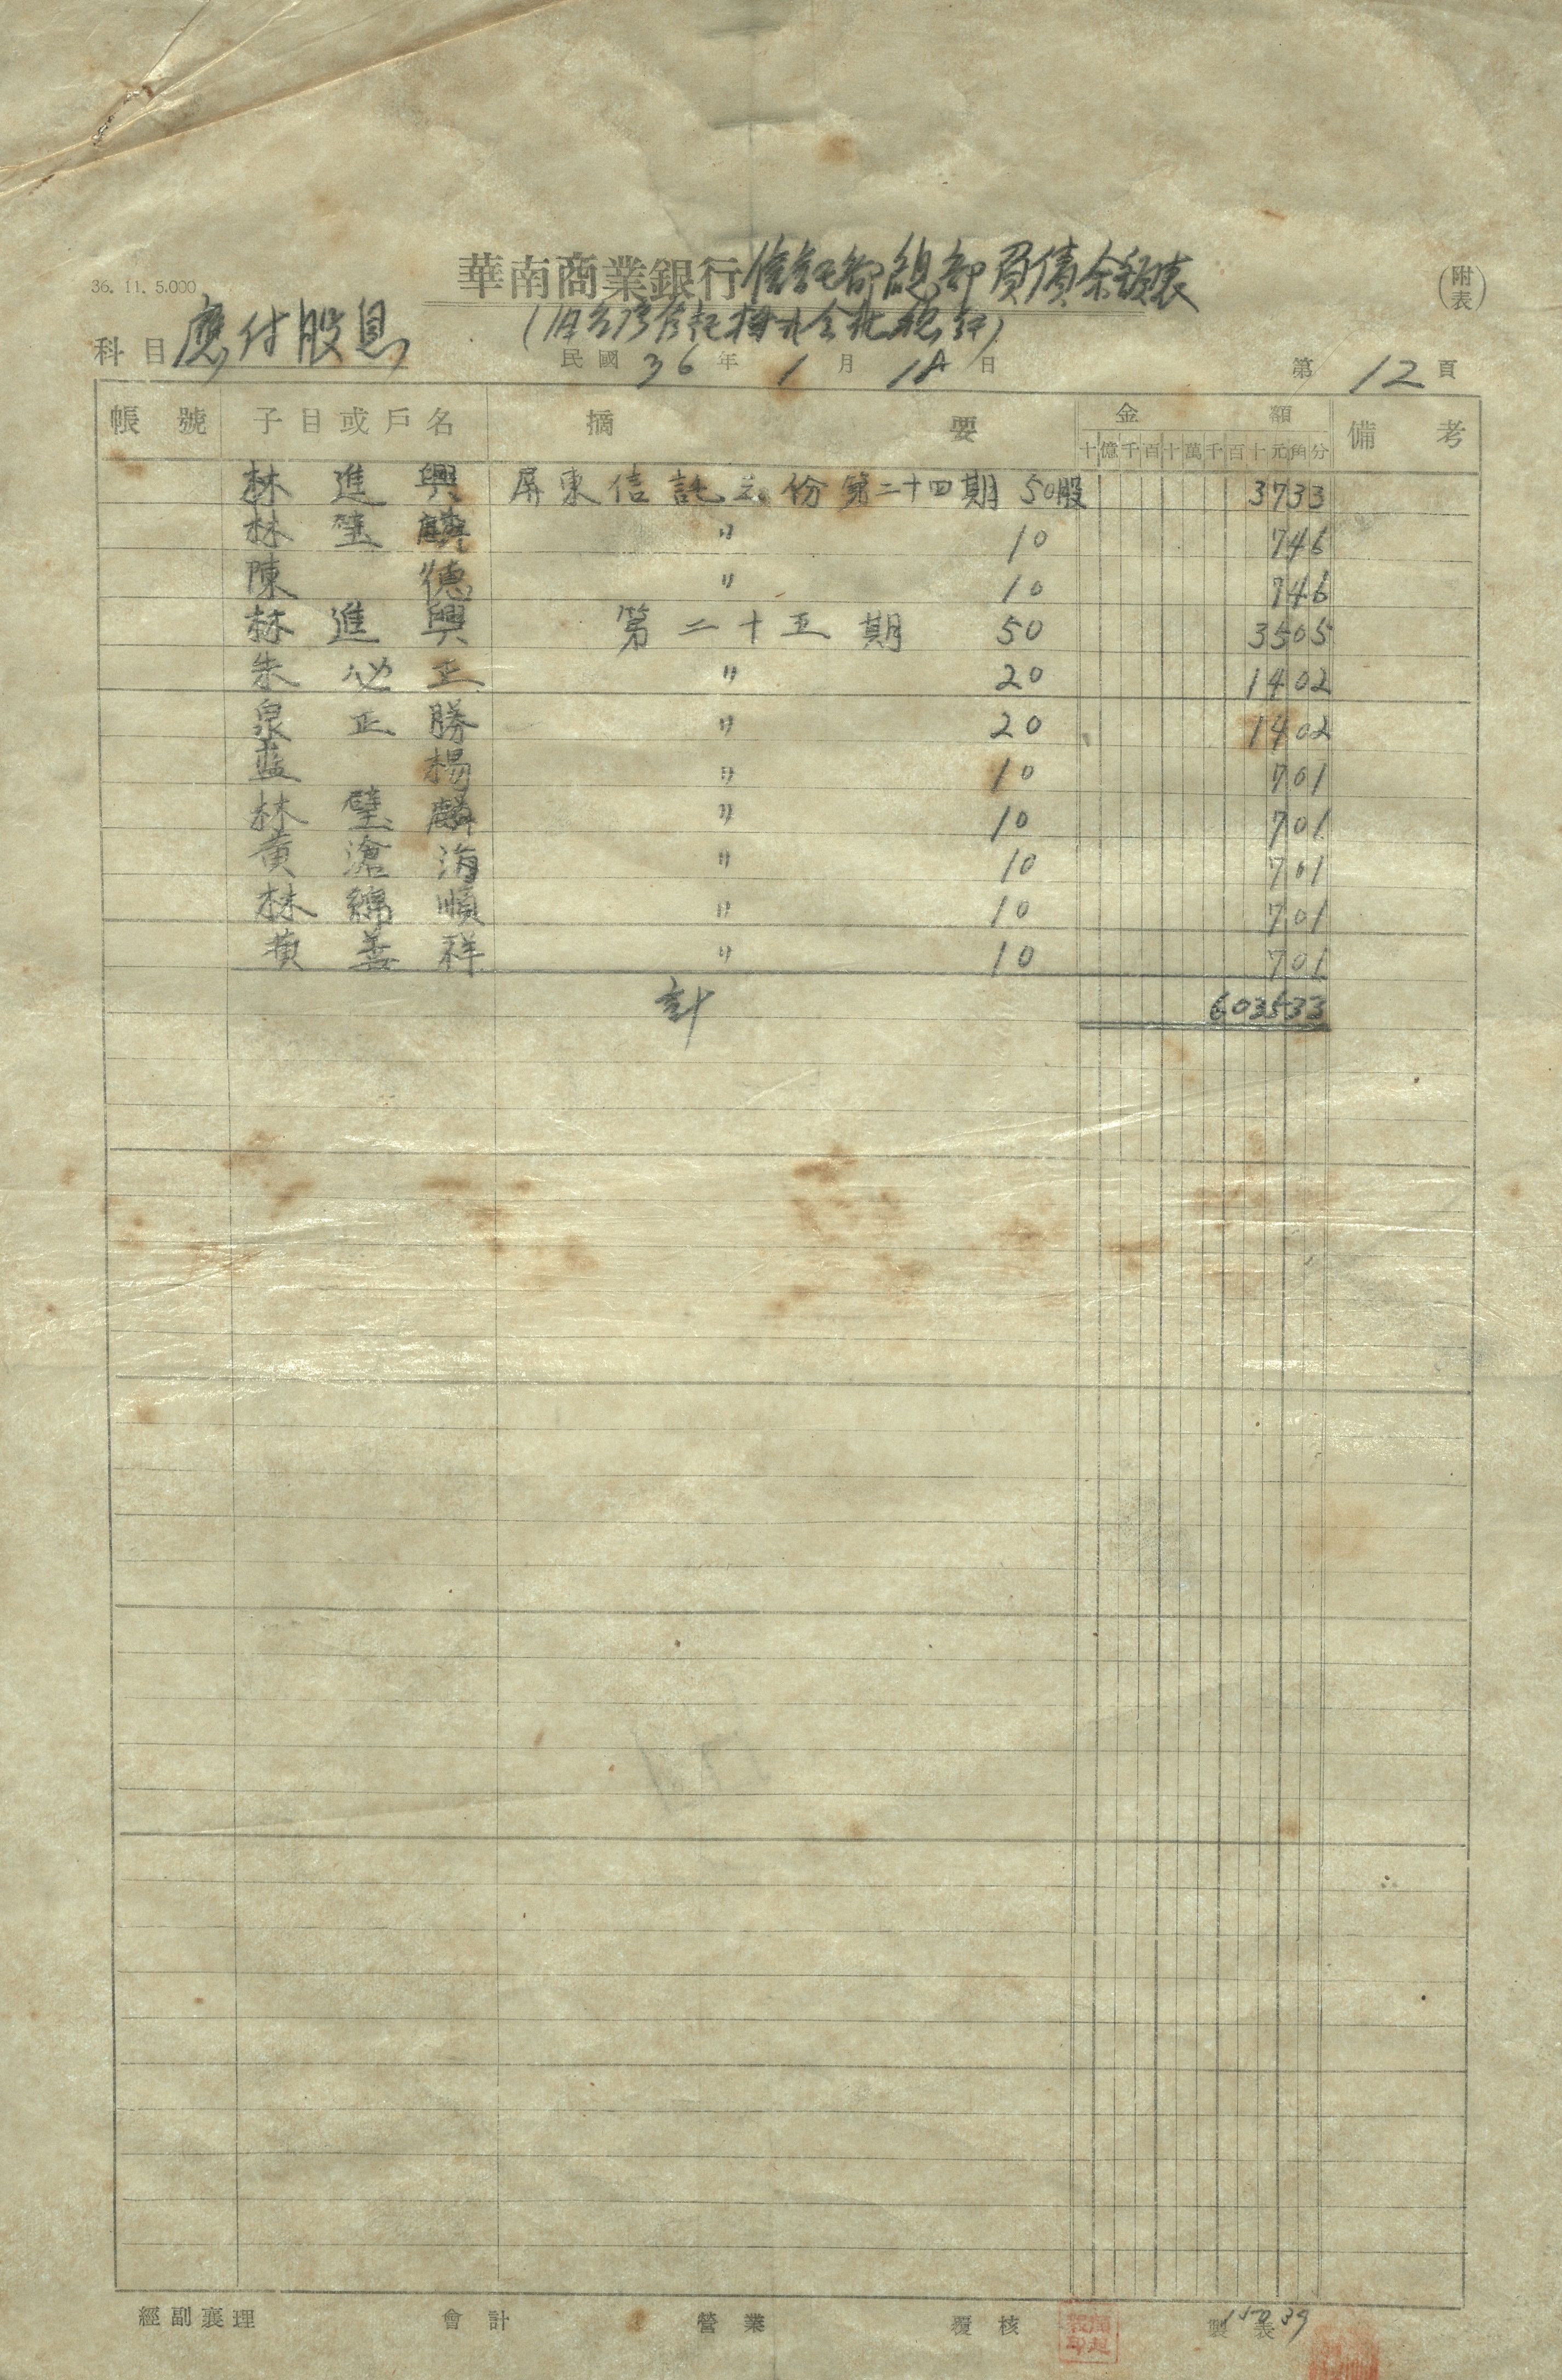 36. 11. 5.000
華南商業銀行信託部總部負債余額表
(附表)
(旧台湾信託株式会社號訂)
科目 應付股息
民國36年1月18日
第12頁
帳號 子目或戶名 摘要 金額 備考
十億千百十萬千百十元角分
林進興 屏東信託 份第二十四期 50股 3733
林璧麟 〃 10 746
陳德 〃 10 746
林進興 第二十五期 50 3505
朱必正 〃 20 1402
泉正勝 〃 20 1402
藍楊 〃 10 701
林璧麟 〃 10 701
黃滄海 〃 10 701
林綿順 〃 10 701
黃善祥 〃 10 701
計 603533
經副襄理 會計 營業 覆核 製表